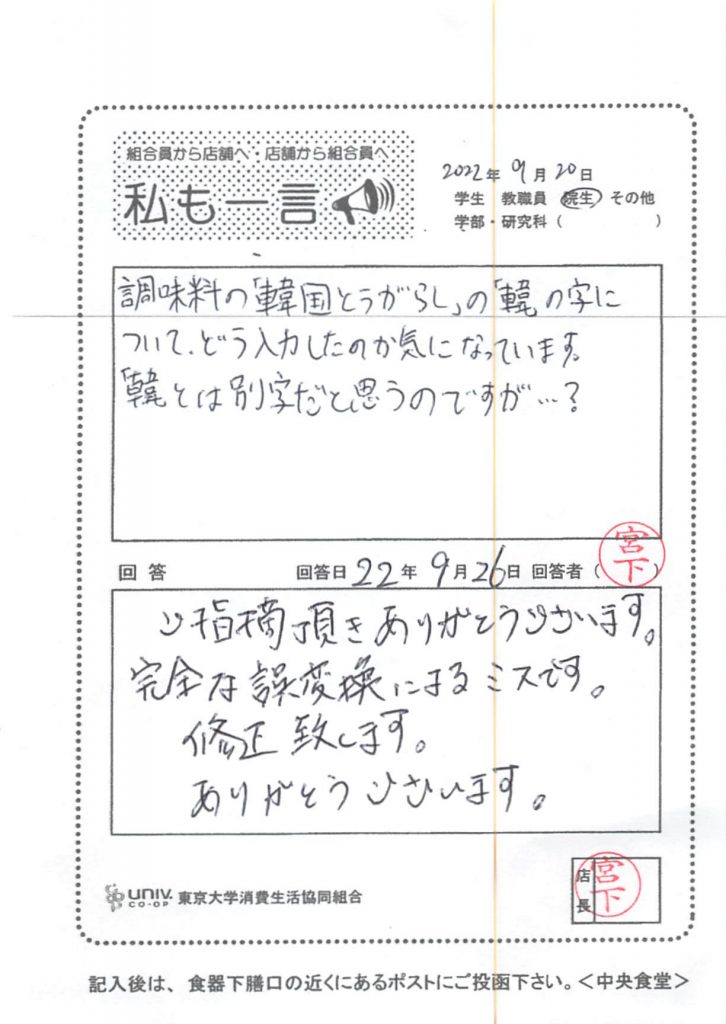 組合員から店舗へ・店舗から組合員へ
私も一言
2022年 9月 20日
学生 教職員 院生 その他
学部・研究科 ( )
調味料の「国とうがらし」の「」の字に
ついて、どう入力したのか気になっています。
「韓」とは別字だと思うのですが…?
回答 回答日 22年 9月26日 回答者 (宮下)
ご指摘頂きありがとうございます。
完全な誤変換によるミスです。
修正致します。
ありがとうございます。
店長 宮下
UNIV. CO-OP 東京大学消費生活協同組合
記入後は、食器下膳口の近くにあるポストにご投函下さい。<中央食堂>